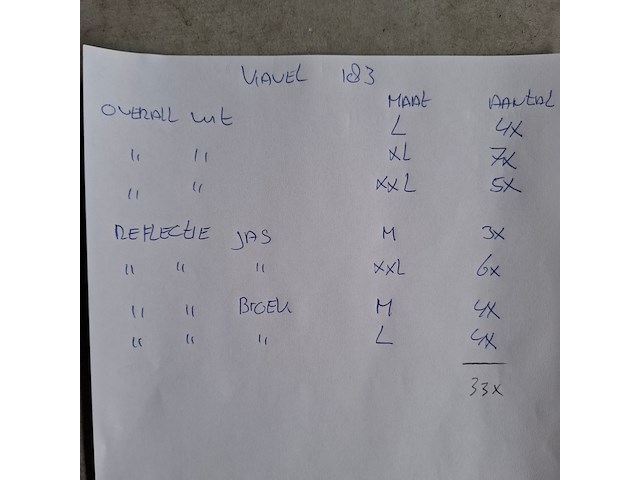 KAVEL 183
MAAT AANTAL
OVERALL WIT L 4X
" " XL 7X
" " XXL 5X
REFLECTIE JAS M 3X
" " " XXL 6X
" " BROEK M 4X
" " " L 4X
33X